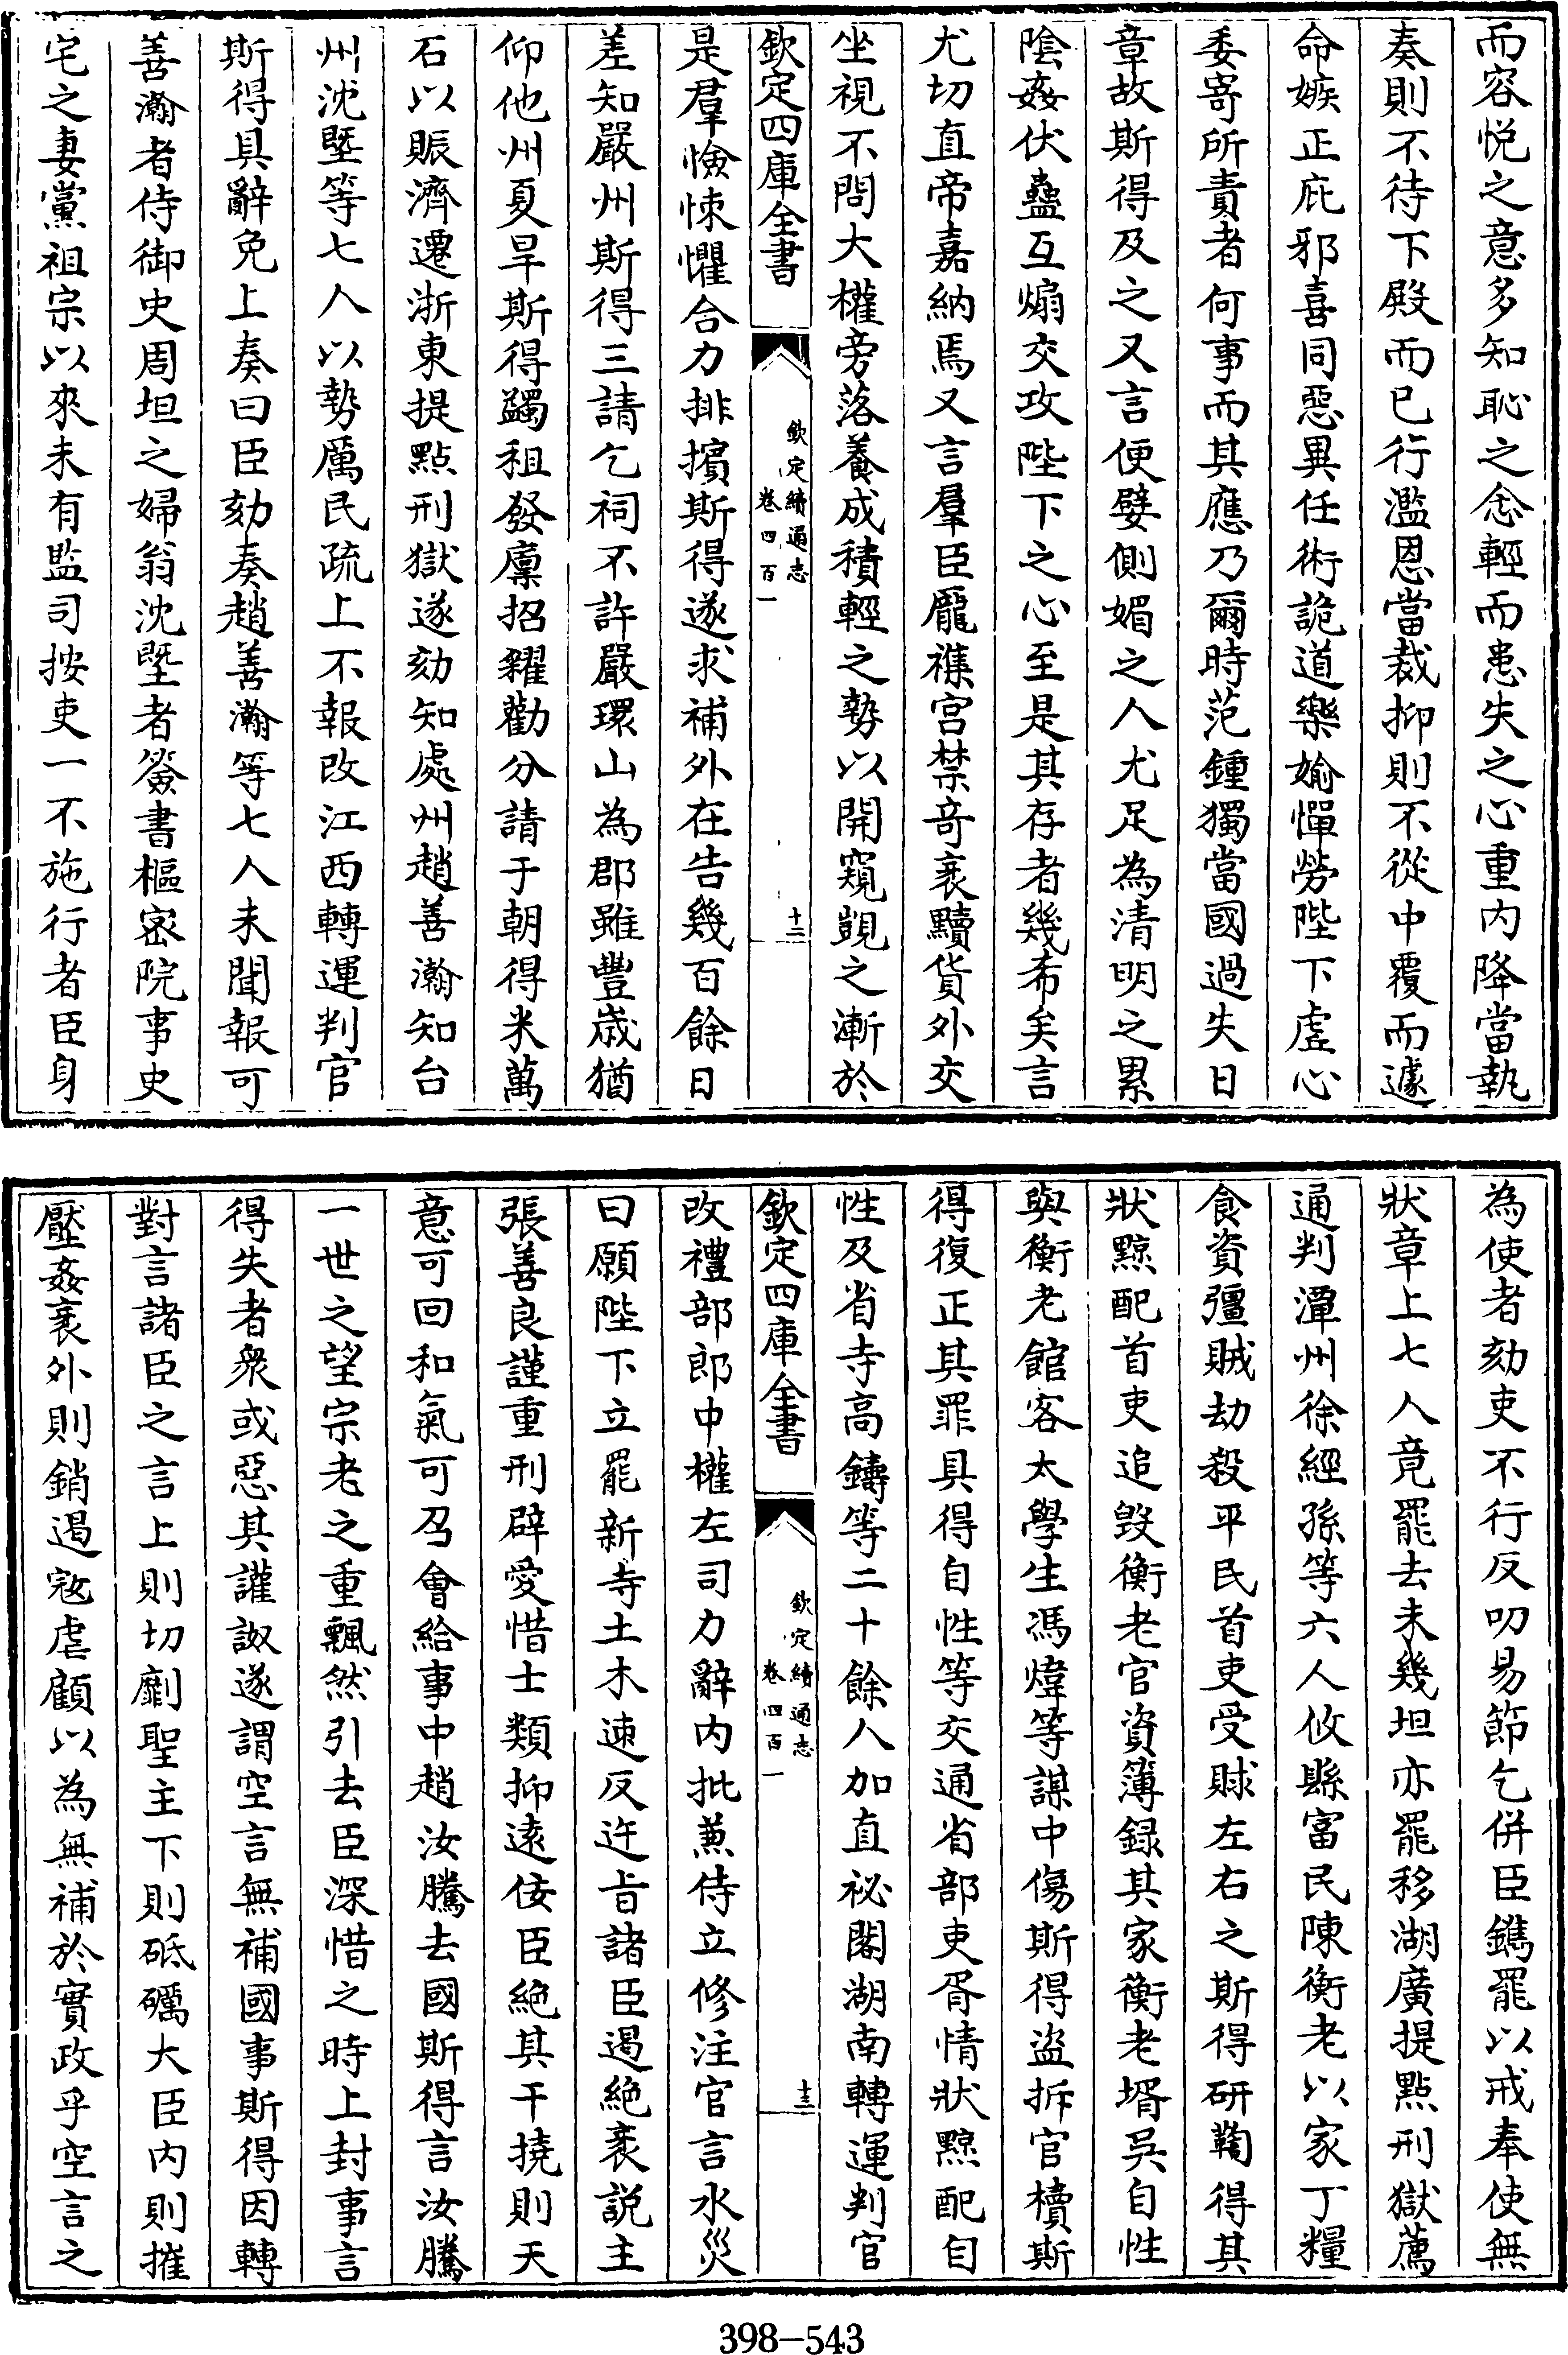 而容悅之意多知恥之念輕而患失之心重内降當執
奏則不待下殿而已行濫恩當裁抑則不從中覆而遽
命嫉正庇邪喜同惡異任術詭道樂媮憚勞陛下虚心
委寄所責者何事而其應乃爾時范鍾獨當國過失日
章故斯得及之又言便嬖側媚之人尤足為清明之累
隂姦伏蠱互煽交攻陛下之心至是其存者幾布矣言
尤切直帝嘉納焉又言羣臣龎襍宮禁竒衺黷貨外交
坐視不問大權旁落養成積輕之勢以開窺覬之漸於
欽定四庫全書
欽定續通志
卷四百一
十二
是羣憸悚懼合力排擯斯得遂求補外在告幾百餘日
差知嚴州斯得三請乞祠不許嚴環山為郡雖豐歳猶
仰他州夏旱斯得蠲租發廩招糴勸分請于朝得米萬
石以賑濟遷浙東提點刑獄遂劾知處州趙善瀚知台
州沈塈等七人以勢厲民疏上不報改江西轉運判官
斯得具辭免上奏曰臣劾奏趙善瀚等七人未聞報可
善瀚者侍御史周坦之婦翁沈塈者簽書樞密院事史
宅之妻黨祖宗以來未有監司按吏一不施行者臣身
為使者劾吏不行反叨易節乞併臣鐫罷以戒奉使無
狀章上七人竟罷去未幾坦亦罷移湖廣提點刑獄薦
通判潭州徐經孫等六人攸縣富民陳衡老以家丁糧
食資彊賊劫殺平民首吏受賕左右之斯得研鞫得其
狀黥配首吏追毁衡老官資簿録其家衡老壻吳自性
與衡老館客太學生馮煒等謀中傷斯得盗拆官櫝斯
得復正其罪具得自性等交通省部吏胥情狀黥配自
性及省寺高鑄等二十餘人加直祕閣湖南轉運判官
欽定四庫全書
欽定續通志
卷四百一
十三
改禮部郎中權左司力辭内批兼侍立修注官言水災
曰願陛下立罷新寺土木速反迕㫖諸臣遏絶衺説主
張善良謹重刑辟愛惜士類抑遠佞臣絶其干撓則天
意可回和氣可召會給事中趙汝騰去國斯得言汝騰
一世之望宗老之重飄然引去臣深惜之時上封事言
得失者衆或惡其讙詉遂謂空言無補國事斯得因轉
對言諸臣之言上則切劘聖主下則砥礪大臣内則摧
壓姦衺外則銷遏㓂虐顧以為無補於實政乎空言之
398-543